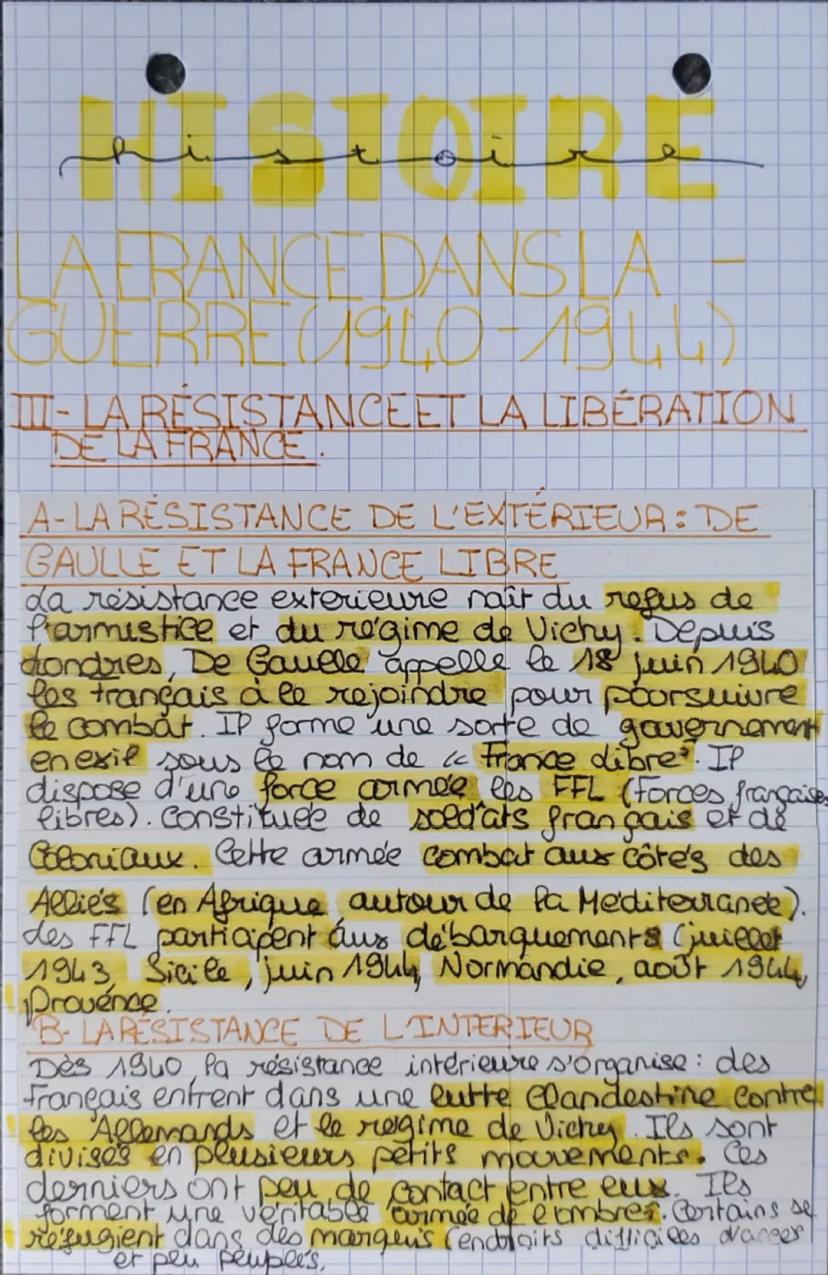 HISTOIRE
histoire
LA FRANCE DANS LA -
GUERRE (1940-1944)
III- LA RÉSISTANCE ET LA LIBÉRATION
DE LA FRANCE.
A- LA RÉSISTANCE DE L'EXTÉRIEUR : DE
GAULLE ET LA FRANCE LIBRE
La résistance exterieure naît du refus de
l'armistice et du régime de Vichy. Depuis
Londres, De Gaulle appelle le 18 juin 1940
les français à le rejoindre pour poursuivre
le combat. Il forme une sorte de gouvernement
en exil sous le nom de "France Libre". Il
dispose d'une force armée les FFL (Forces françaises
libres). Constituée de soldats français et de
Coloniaux. Cette armée combat aux côtés des
Alliés (en Afrique autour de la Méditerranée).
Les FFL particpent aux débarquements (juillet
1943, Sicile, juin 1944, Normandie, août 1944,
Provence.
B- LA RÉSISTANCE DE L'INTERIEUR
Dès 1940, la résistance intérieure s'organise : des
Français entrent dans une lutte clandestine contre
les Allemands et le régime de Vichy. Ils sont
divisés en plusieurs petits mouvements. Ces
derniers ont peu de contact entre eux. Ils
forment une véritable "armée de l'ombre". Certains se
réfugient dans des marquis (endroits difficiles d'accès
et peu peuplés.